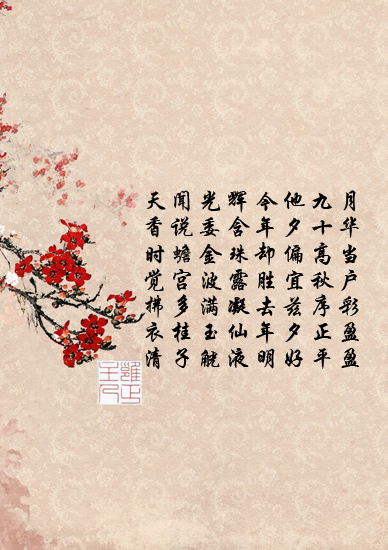 月华当户彩盈盈
九十高秋序正平
他夕偏宜兹夕好
今年却胜去年明
辉含珠露凝仙液
光委金波满玉觥
闻说蟾宫多桂子
天香时觉拂衣清
雍正
主人